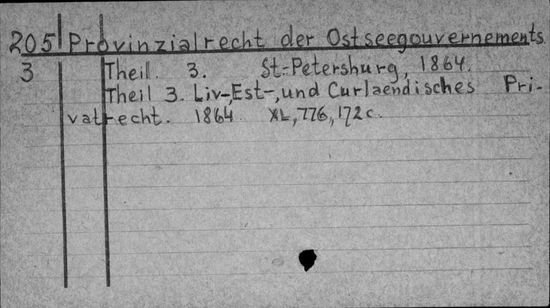 205 Provinzialrecht der Ostseegouvernements
3 Theil. 3. St-Petersburg, 1864.
Theil 3. Liv-, Est-, und Curlaendisches Pri-
vatrecht. 1864 XL, 776, 172 c.